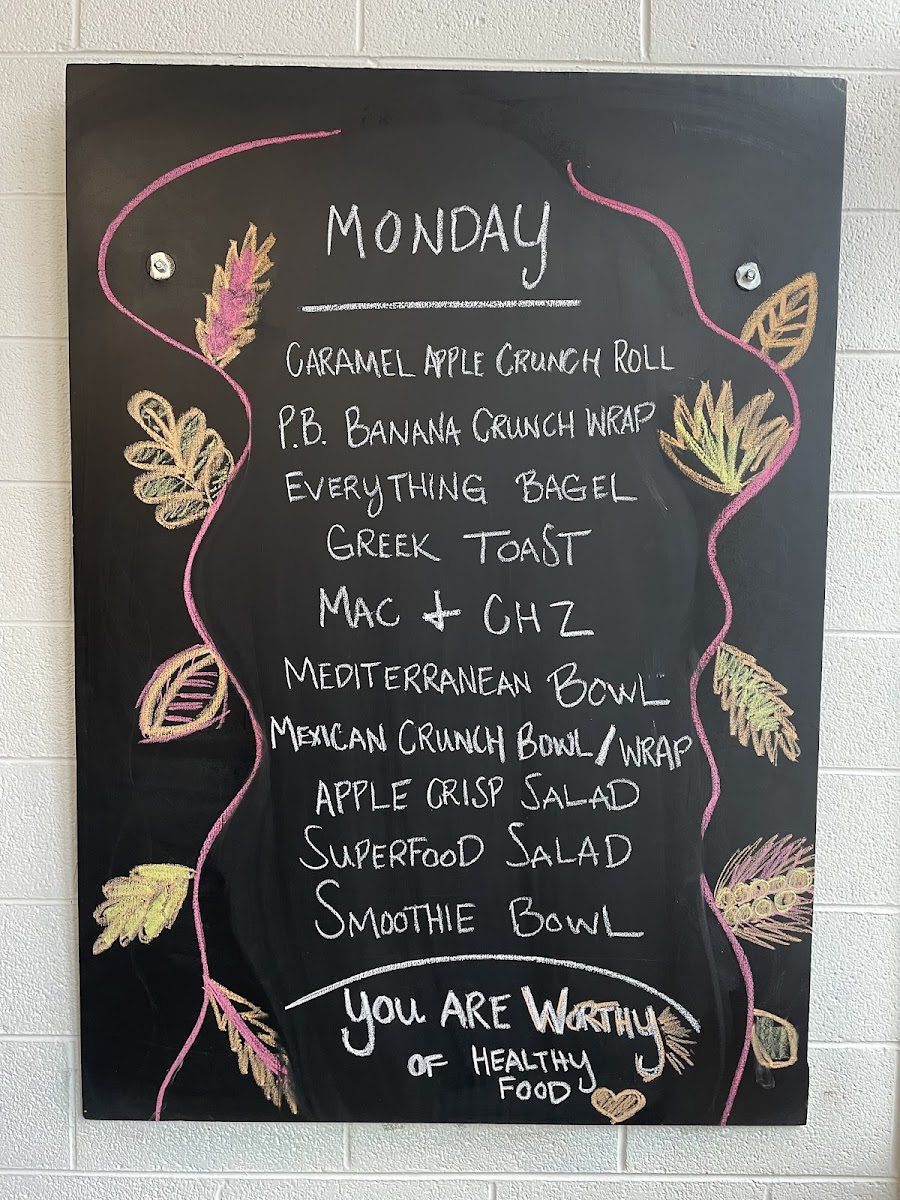 MONDAY
CARAMEL APPLE CRUNCH ROLL
P.B. BANANA CRUNCH WRAP
EVERYTHING BAGEL
GREEK TOAST
MAC + CHZ
MEDITERRANEAN BOWL
MEXICAN CRUNCH BOWL/WRAP
APPLE CRISP SALAD
SUPERFOOD SALAD
SMOOTHIE BOWL
YOU ARE WORTHY
OF HEALTHY
FOOD